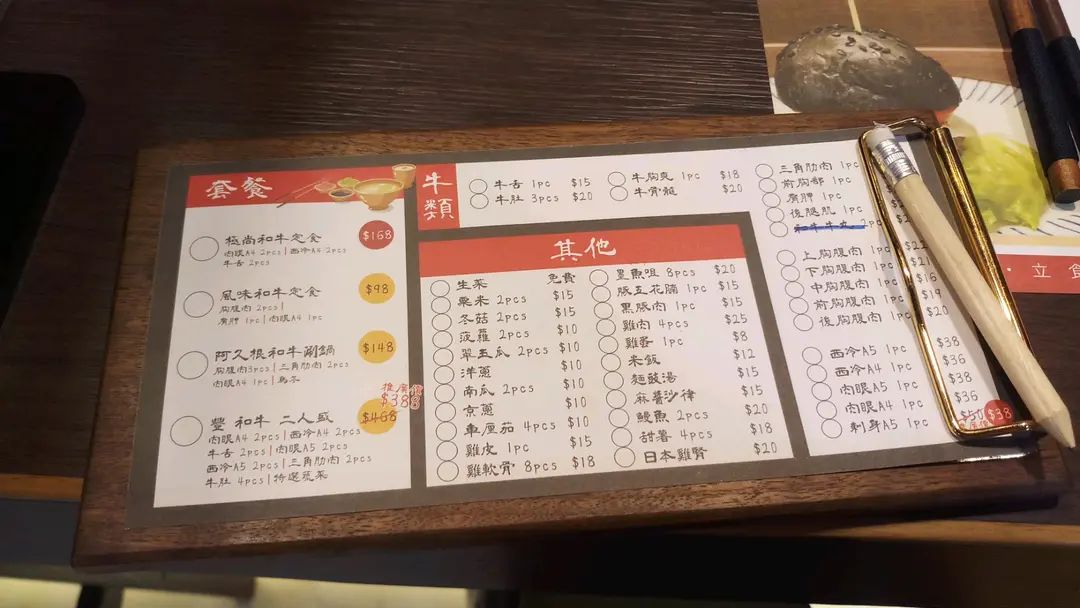 套餐
極尚和牛定食 $168
肉眼A4 2pcs | 西冷A4 2pcs
牛舌 2pcs
風味和牛定食 $98
胸腹肉 2pcs |
肩胛 1pc | 肉眼A4 1pc
阿久根和牛涮鍋 $148
胸腹肉3pcs | 三角肋肉 2pcs
肉眼A4 1pc | 烏冬
推廣價
$388
豐 和牛 二人盛 $468
肉眼A4 2pcs | 西冷A4 2pcs
牛舌 2pcs | 肉眼A5 2pcs
西冷A5 2pcs | 三角肋肉 2pcs
牛肚 4pcs | 特選蔬菜
牛類
牛舌 1pc $15
牛肚 3pcs $20
牛胸爽 1pc $18
牛骨髓 $20
三角肋肉 1pc
前胸部 1pc
肩胛 1pc
後腿肌 1pc
和牛牛丸 2pc
上胸腹肉 1pc
下胸腹肉 1pc $21
中胸腹肉 1pc $16
前胸腹肉 1pc $19
後胸腹肉 1pc $20
西冷A5 1pc $38
西冷A4 1pc $36
肉眼A5 1pc $38
肉眼A4 1pc $36
刺身A5 1pc $50 $38
其他
生菜 免費
粟米 2pcs $15
冬菇 2pcs $15
菠蘿 2pcs $10
翠玉瓜 2pcs $10
洋蔥 $10
南瓜 2pcs $10
京蔥 $10
車厘茄 4pcs $10
雞皮 1pc $15
雞軟骨 8pcs $18
墨魚咀 8pcs $20
豚五花腩 1pc $15
黑豚肉 1pc $15
雞肉 4pcs $25
雞蛋 1pc $8
米飯 $12
麵豉湯 $15
麻醬沙律 $15
鰻魚 2pcs $20
甜薯 4pcs $18
日本雞腎 $20
· 立食